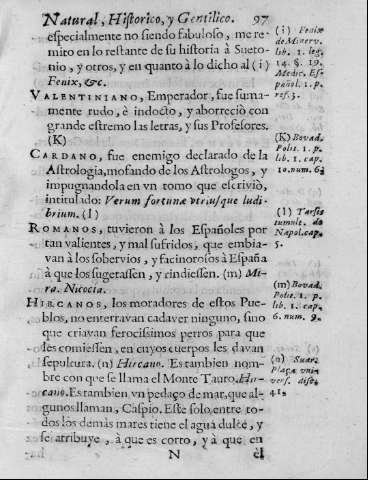 Natural, Historico, y Gentilico. 97
especialmente no siendo fabuloso, me re-
mito en lo restante de su historia à Sueto-
nio, y otros, y en quanto à lo dicho al (i)
Fenix, &c.
VALENTINIANO, Emperador, fue suma-
mente rudo, è indocto, y aborreciò con
grande estremo las letras, y sus Profesores.
(K)
CARDANO, fue enemigo declarado de la
Astrologia, mofando de los Astrologos, y
impugnandola en vn tomo que escriviò,
intitulado: Verum fortunæ vtriusque ludi-
brium. (l)
ROMANOS, tuvieron à los Españoles por
tan valientes, y mal sufridos, que embia-
van à los sobervios, y facinorosos à España
à que los sugetassen, y rindiessen. (m) Mi-
ra. Nicocia.
HIRCANOS, los moradores de estos Pue-
blos, no enterravan cadaver ninguno, sino
que criavan ferocissimos perros para que
les comiessen, en cuyos cuerpos les davan
sepultura. (n) Hircano. Es tambien nom-
bre con que se llama el Monte Tauro. Hir-
cano. Es tambien vn pedaço de mar, que al-
gunos llaman, Caspio. Este solo, entre to-
dos los demàs mares tiene el agua dulce, y
se atribuye, à que es corto, y à que en
N el
(i) Fenix
de Minerv.
lib. 1. leg.
14. §. 19.
Medic. Es-
pañol. 1. p.
ref. 3.
(K) Bovad.
Polit. 1. p.
lib. 1. cap.
10. num. 6.
(l) Tarsis
tumult. de
Napol. cap.
5.
(m) Bovad.
Polit. 1. p.
lib. 1. cap.
6. num. 9.
(n) Suar.
Plaça vni-
vers. disc.
41.